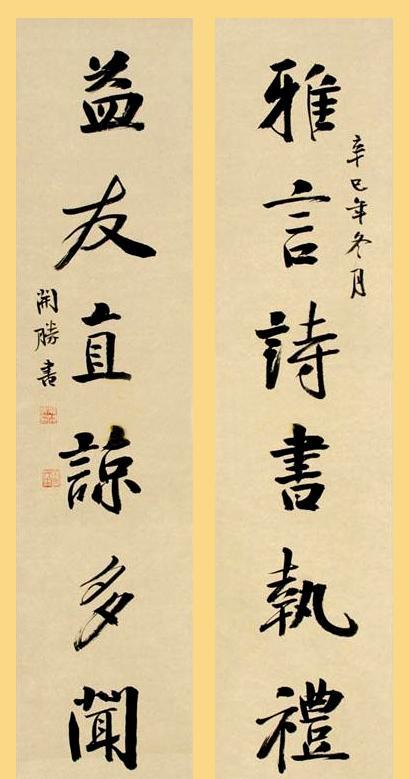 雅言詩書執禮
辛巳年冬月
益友直諒多聞
開勝書